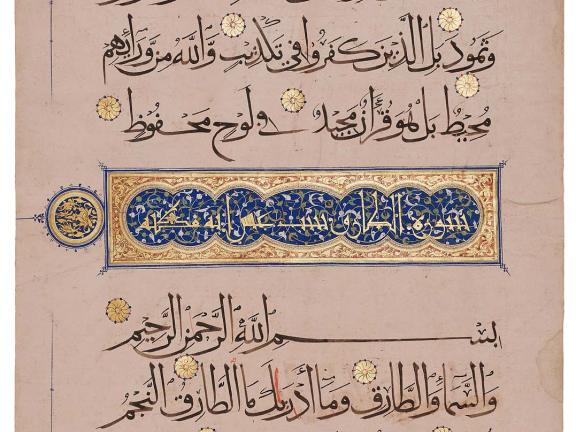 وَثَمُودَ بَلِ الَّذِينَ كَفَرُوا فِي تَكْذِيبٍ وَاللَّهُ مِنْ وَرَائِهِمْ
مُحِيطٌ بَلْ هُوَ قُرْآنٌ مَجِيدٌ فِي لَوْحٍ مَحْفُوظٍ
سورة الطارق
بِسْمِ اللَّهِ الرَّحْمَنِ الرَّحِيمِ
وَالسَّمَاءِ وَالطَّارِقِ وَمَا أَدْرَىكَ مَا الطَّارِقُ النَّجْمُ